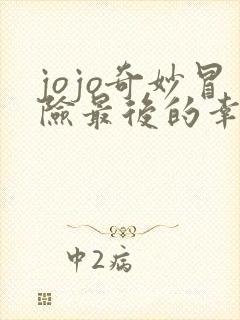 jojo奇妙冒
險最後的幸
中2病